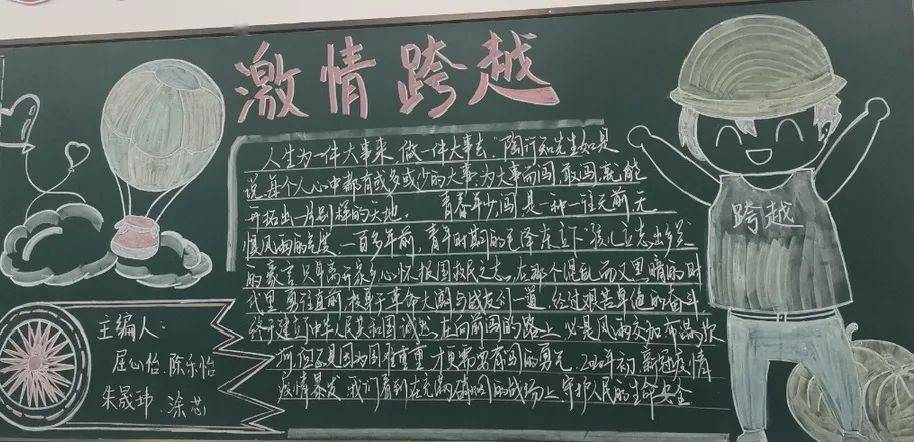 激情跨越
人生为一件大事来.做一件大事去."陶行知先生如是
说.每个人心中都有或多或少的大事.为大事而闯.敢闯.就能
开拓出一片别样的天地. 青春年少.闯是一种一往无前无
惧风雨的气度.一百多年前.青年时期的毛泽东立下"孩儿立志出乡关
的豪言.只身离开家乡.心怀救国救民之志.在那个混乱而又黑暗的时
代里.勇往直前.投身于革命大潮.与战友们一道.经过艰苦卓绝的奋斗
终于建立了中华人民共和国.诚然.在向前闯的路上.必是风雨交加.布满坎
是因为困难重重.才更需要有闯的勇气.2020年初.新冠疫情
疫情暴发.我们看到在充满硝烟的战场上.守护人民的生命安全
跨越
主编人:
屈心怡.陈乐怡
朱晟玮.涂芯